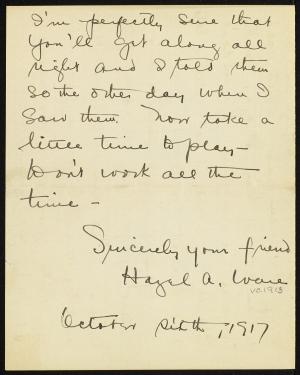 I'm perfectly sure that
You'll get along all
right and I told them
so the other day when I
saw them. Now take a
little time to play—
Don't work all the
time—
Sincerely your friend
Hazel A. Ware
VC1918
October sixth, 1917